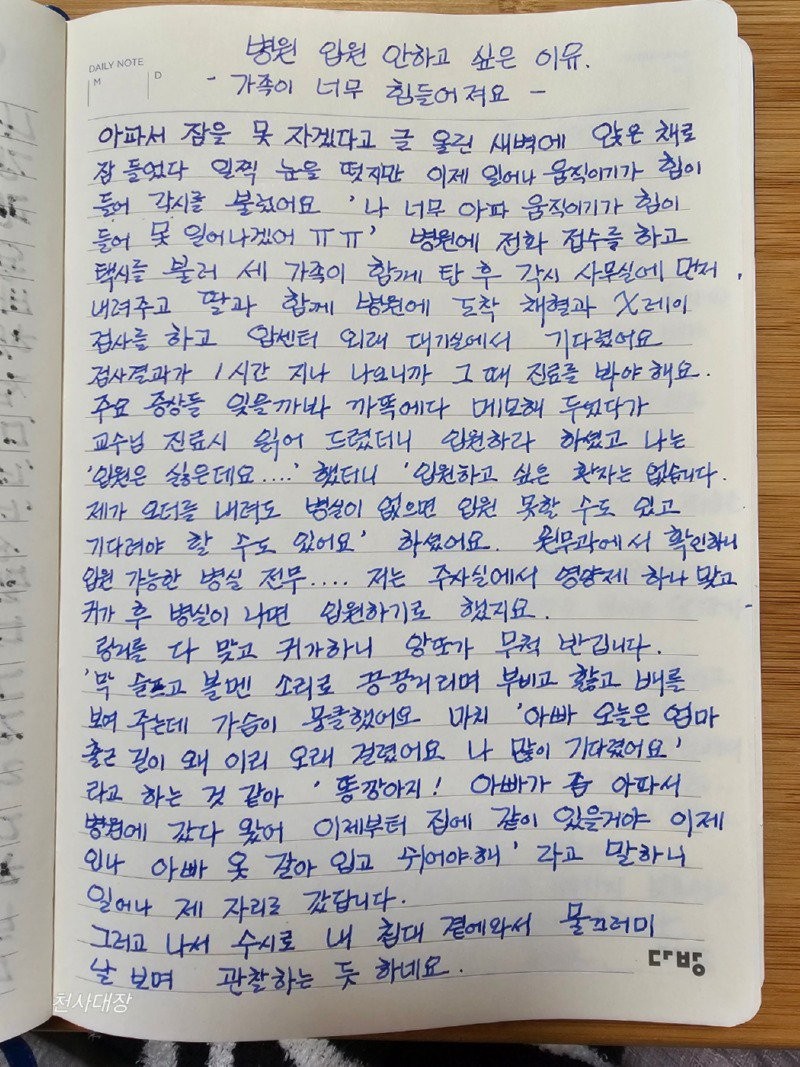 DAILY NOTE
M
D
병원 입원 안하고 싶은 이유.
- 가족이 너무 힘들어져요 -
아파서 잠을 못 자겠다고 글 올린 새벽에 앉은 채로
잠 들었다 일찍 눈을 떳지만 이제 일어나 움직이기가 힘이
들어 각시를 불렀어요 '나 너무 아파 움직이기가 힘이
들어 못 일어나겠어 ㅠㅠ' 병원에 전화 접수를 하고
택시를 불러 세 가족이 함께 탄 후 각시 사무실에 먼저,
내려주고 딸과 함께 병원에 도착 채혈과 X레이
검사를 하고 암센터 외래 대기실에서 기다렸어요
검사결과가 1시간 지나 나오니까 그 때 진료를 봐야해요.
주요 증상들 잊을까봐 까똑에다 메모해 두었다가
교수님 진료시 읽어 드렸더니 입원하라 하셨고 나는
'입원은 싫은데요....' 했더니 '입원하고 싶은 환자는 없습니다.
제가 오더를 내려도 병실이 없으면 입원 못할 수도 있고
기다려야 할 수도 있어요' 하셨어요. 원무과에서 확인하니
입원 가능한 병실 전무.... 저는 주사실에서 영양제 하나 맞고
귀가 후 병실이 나면 입원하기로 했지요.
링거를 다 맞고 귀가하니 앙또가 무척 반깁니다.
'막 슬프고 볼멘 소리로 끙끙거리며 부비고 핥고 배를
보여 주는데 가슴이 뭉클했어요 마치 '아빠 오늘은 엄마
출근 길이 왜 이리 오래 걸렸어요 나 많이 기다렸어요'
라고 하는 것 같아 '똥깡아지! 아빠가 좀 아파서
병원에 갔다 왔어 이제부터 집에 같이 있을거야 이제
인나 아빠 옷 갈아 입고 쉬어야해' 라고 말하니
일어나 제 자리로 갔답니다.
그러고 나서 수시로 내 침대 곁에와서 물끄러미
날 보며 관찰하는 듯 하네요.
다방
천사대장